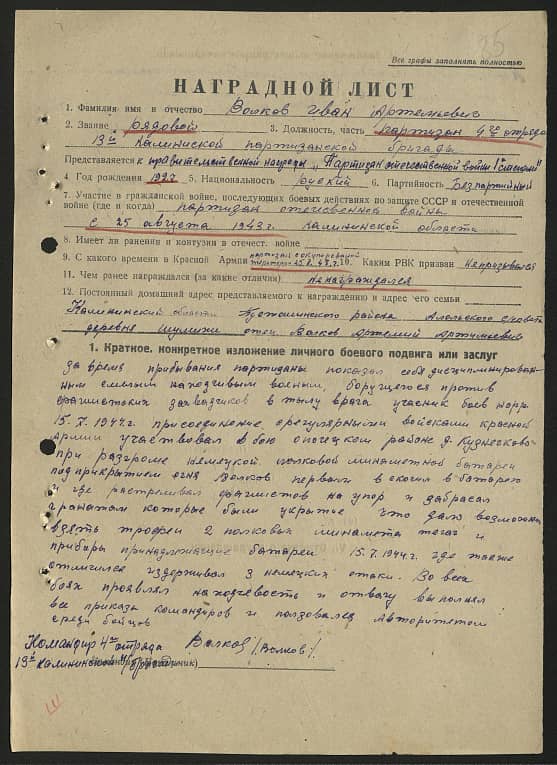 Все графы заполнять полностью
НАГРАДНОЙ ЛИСТ
1. Фамилия имя и отчество Волков Иван Артемьевич
2. Звание рядовой 3. Должность, часть партизан 4го отряда
13й Калининской партизанской бригады
Представляется к правительственной награды „Партизан отечественной войны I степени"
4. Год рождения 1927 5. Национальность руский 6. Партийность Безпартийный
7. Участие в гражданской войне, последующих боевых действиях по защите СССР и отечественной
войне (где и когда) партизан отечественной войны
с 25 августа 1943 г. Калининской области
8. Имеет ли ранения и контузия в отечест. войне
9. С какого времени в Красной Армии партизан 10. Каким РВК призван непризывался
11. Чем ранее награждался (за какие отличия) ненаграждался
12. Постоянный домашний адрес представляемого к награждению и адрес его семьи
Калининский области района совета
деревня отец Волков Артемий
1. Краткое, конкретное изложение личного боевого подвига или заслуг
за время прибывания партизаны показал себя дисциплинирован
ным смелым находчивым военым, борущегося против
фашистских захватчиков в тылу врага учасник боев
15.7.1944г. присоединение срегулярными войсками красной
Армии участвовал в бою опочецком районе д.
при разгроме немецкой полковой минаметной батареи
под прикрытием огня Волков первый вскочил в батарею
и где растреливал фашистов на упор и забрасал
гранатом которые были укрытие что дал возможн
взять трофеи 2 полковых минамета тегач и
прибары принадлежащие батареи 15.7.1944г. где также
отличился издерживал 3 немецких атаки. Во всех
боях проявлял находчевость и отвагу выполнял
все приказы командиров и ползовалса авторитетом
среди бойцов
Командир 4го отряда Волков /Волков/.
13й Калининской